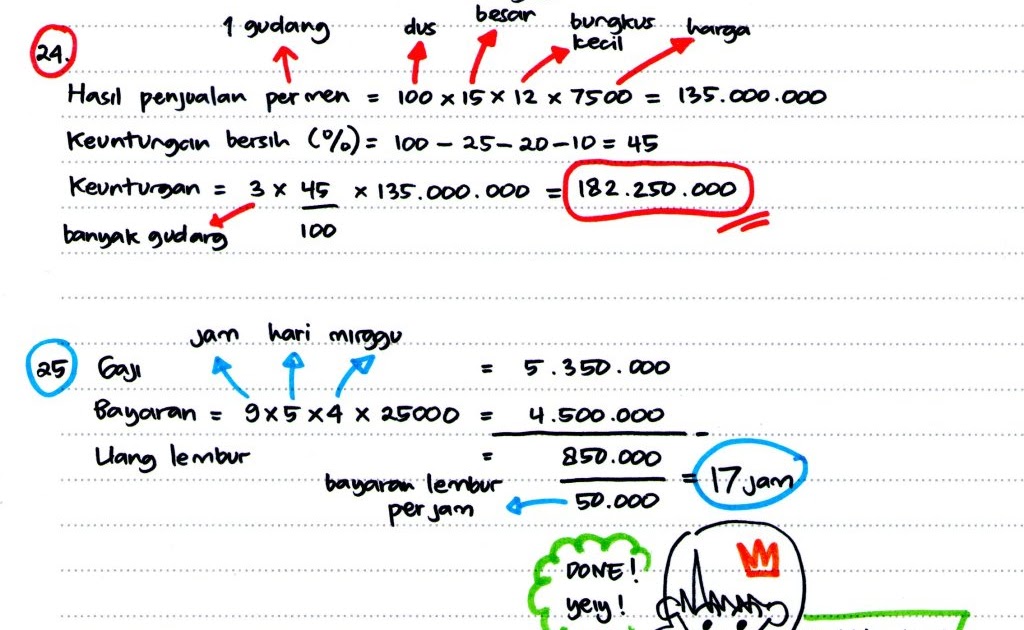 24.
1 gudang dus besar bungkus kecil harga
Hasil penjualan permen = 100 × 15 × 12 × 7500 = 135.000.000
Keuntungan bersih (%) = 100 - 25 - 20 - 10 = 45
Keuntungan = 3 × 45/100 × 135.000.000 = 182.250.000
banyak gudang
25
jam hari minggu
Gaji = 5.350.000
Bayaran = 9 × 5 × 4 × 25000 = 4.500.000 -
Uang lembur = 850.000
50.000 = 17 jam
bayaran lembur
per jam
DONE!
yeiy!